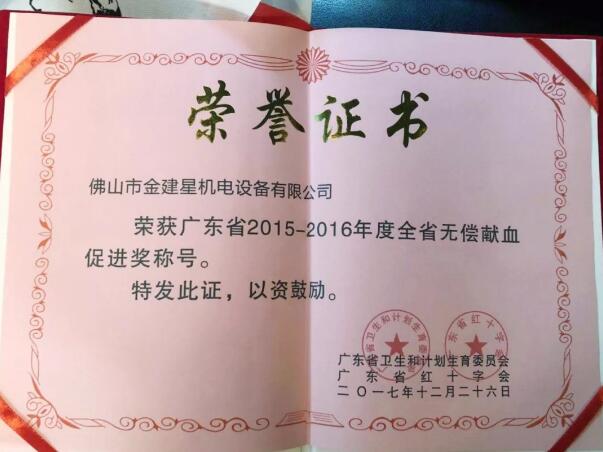 荣誉证书
佛山市金建星机电设备有限公司
荣获广东省2015-2016年度全省无偿献血
促进奖称号。
特发此证，以资鼓励。
广东省卫生和计划生育委员会
广东省红十字会
二〇一七年十二月二十六日